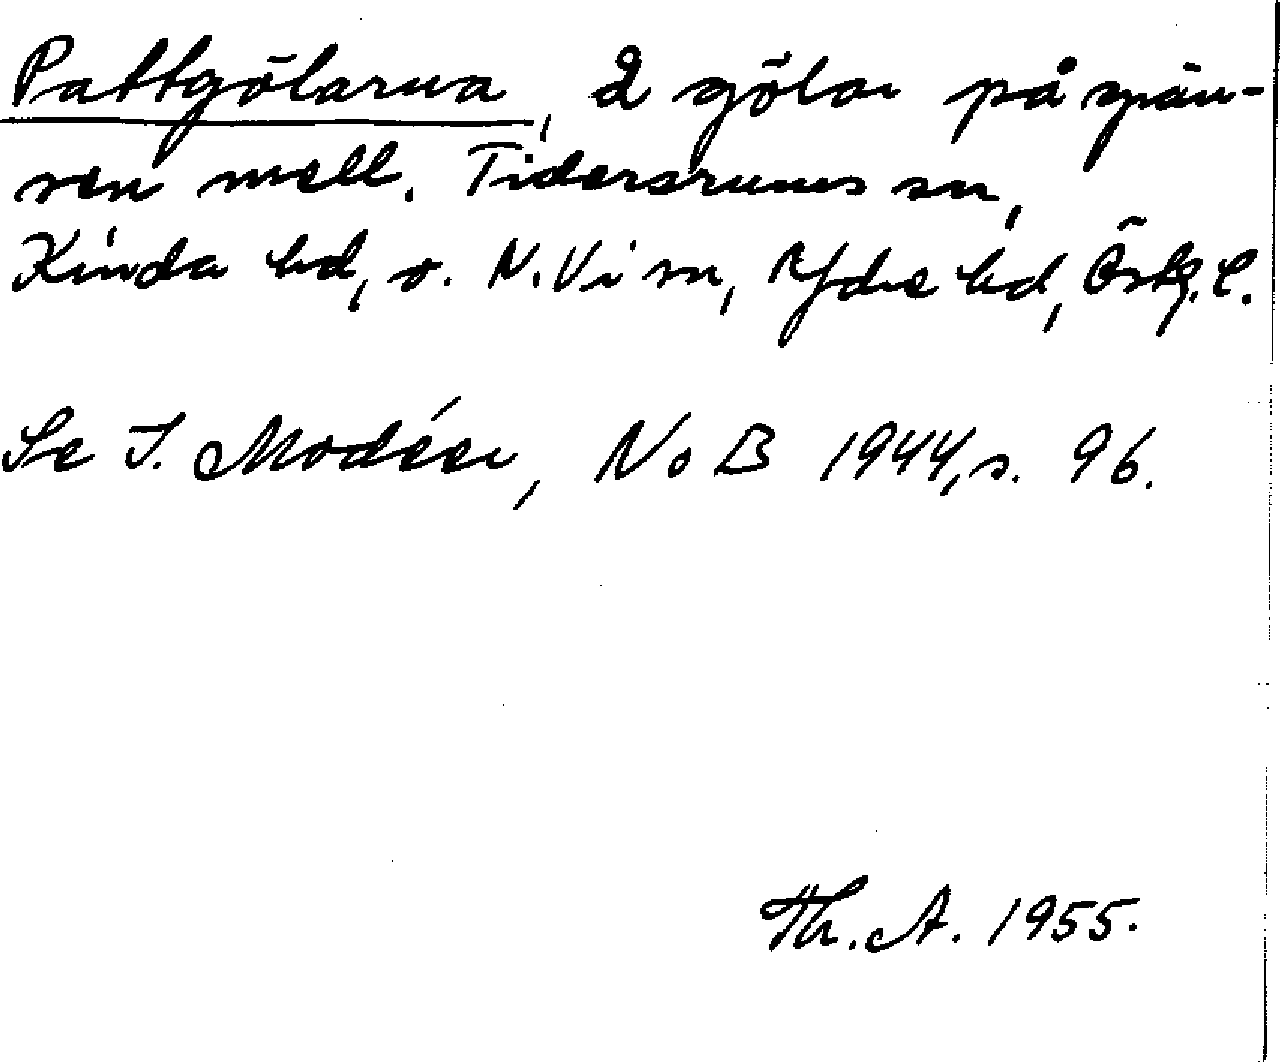 Pattgölarna, 2 gölar på grän-
sen mell. Tidersrums sn,
Kinda hd, o. N. Vi sn, Ydre hd, Östg. l.
Se I. Modéer, NoB 1944, s. 96.
Th. A. 1955.